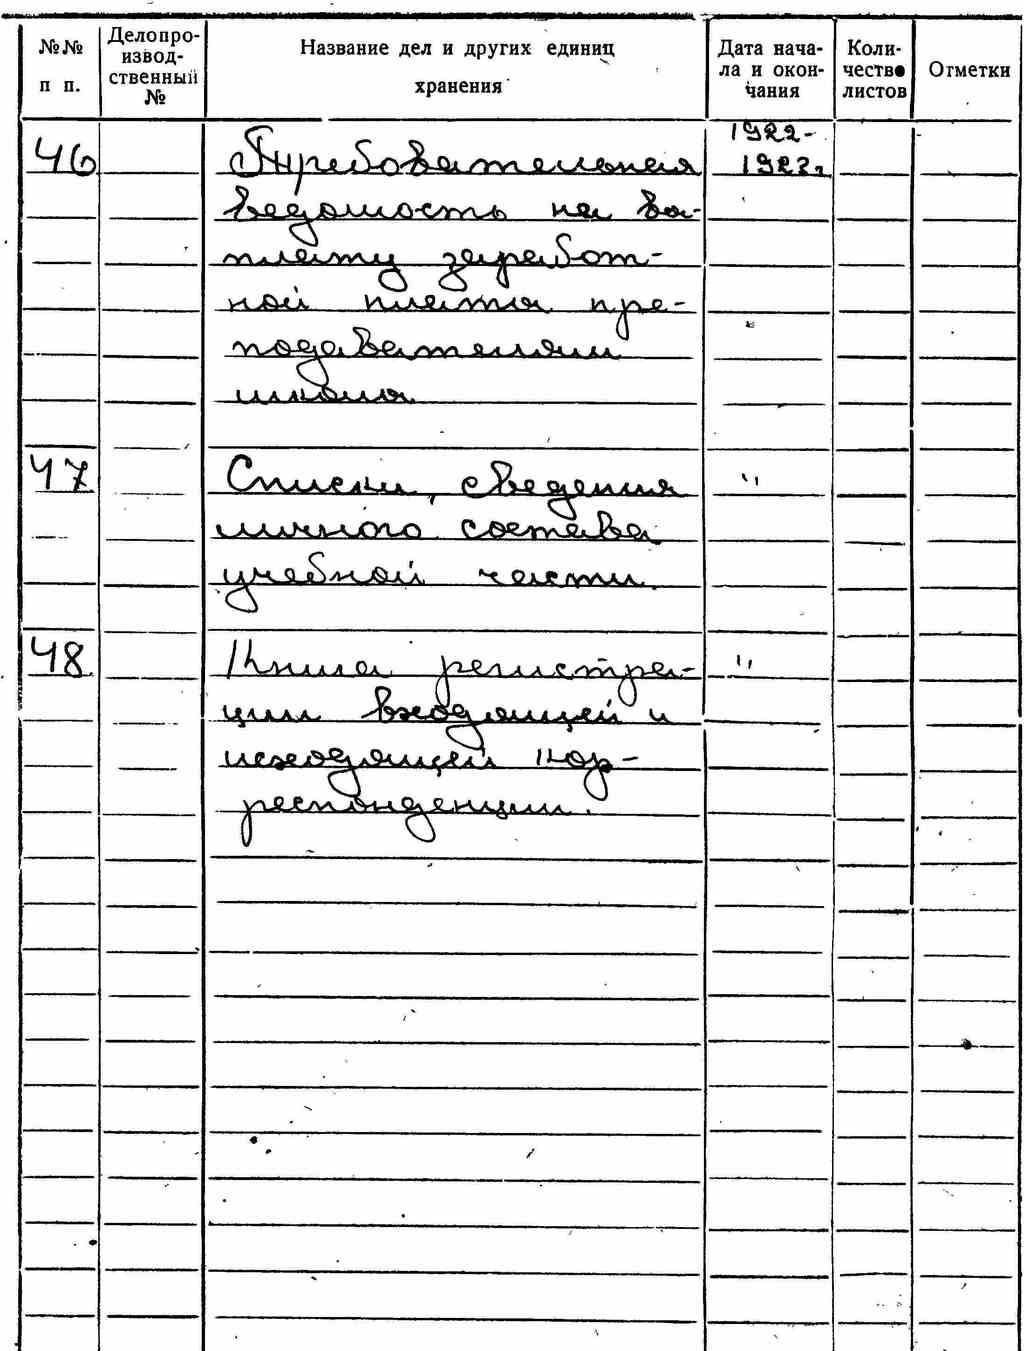 №№ п п.
Делопроизвод-
ственный №
Название дел и других единиц
хранения
Дата нача-
ла и окон-
чания
Коли-
чество
листов
Отметки
46 Требовательная 1922-
1923г.
ведомость на вы-
плату заработ-
ной платы пре-
подавателям
школы
47 Списки, сведения "
личного состава
учебной части.
48. Книга регистра- "
ции входящей и
исходящей кор-
респонденции.